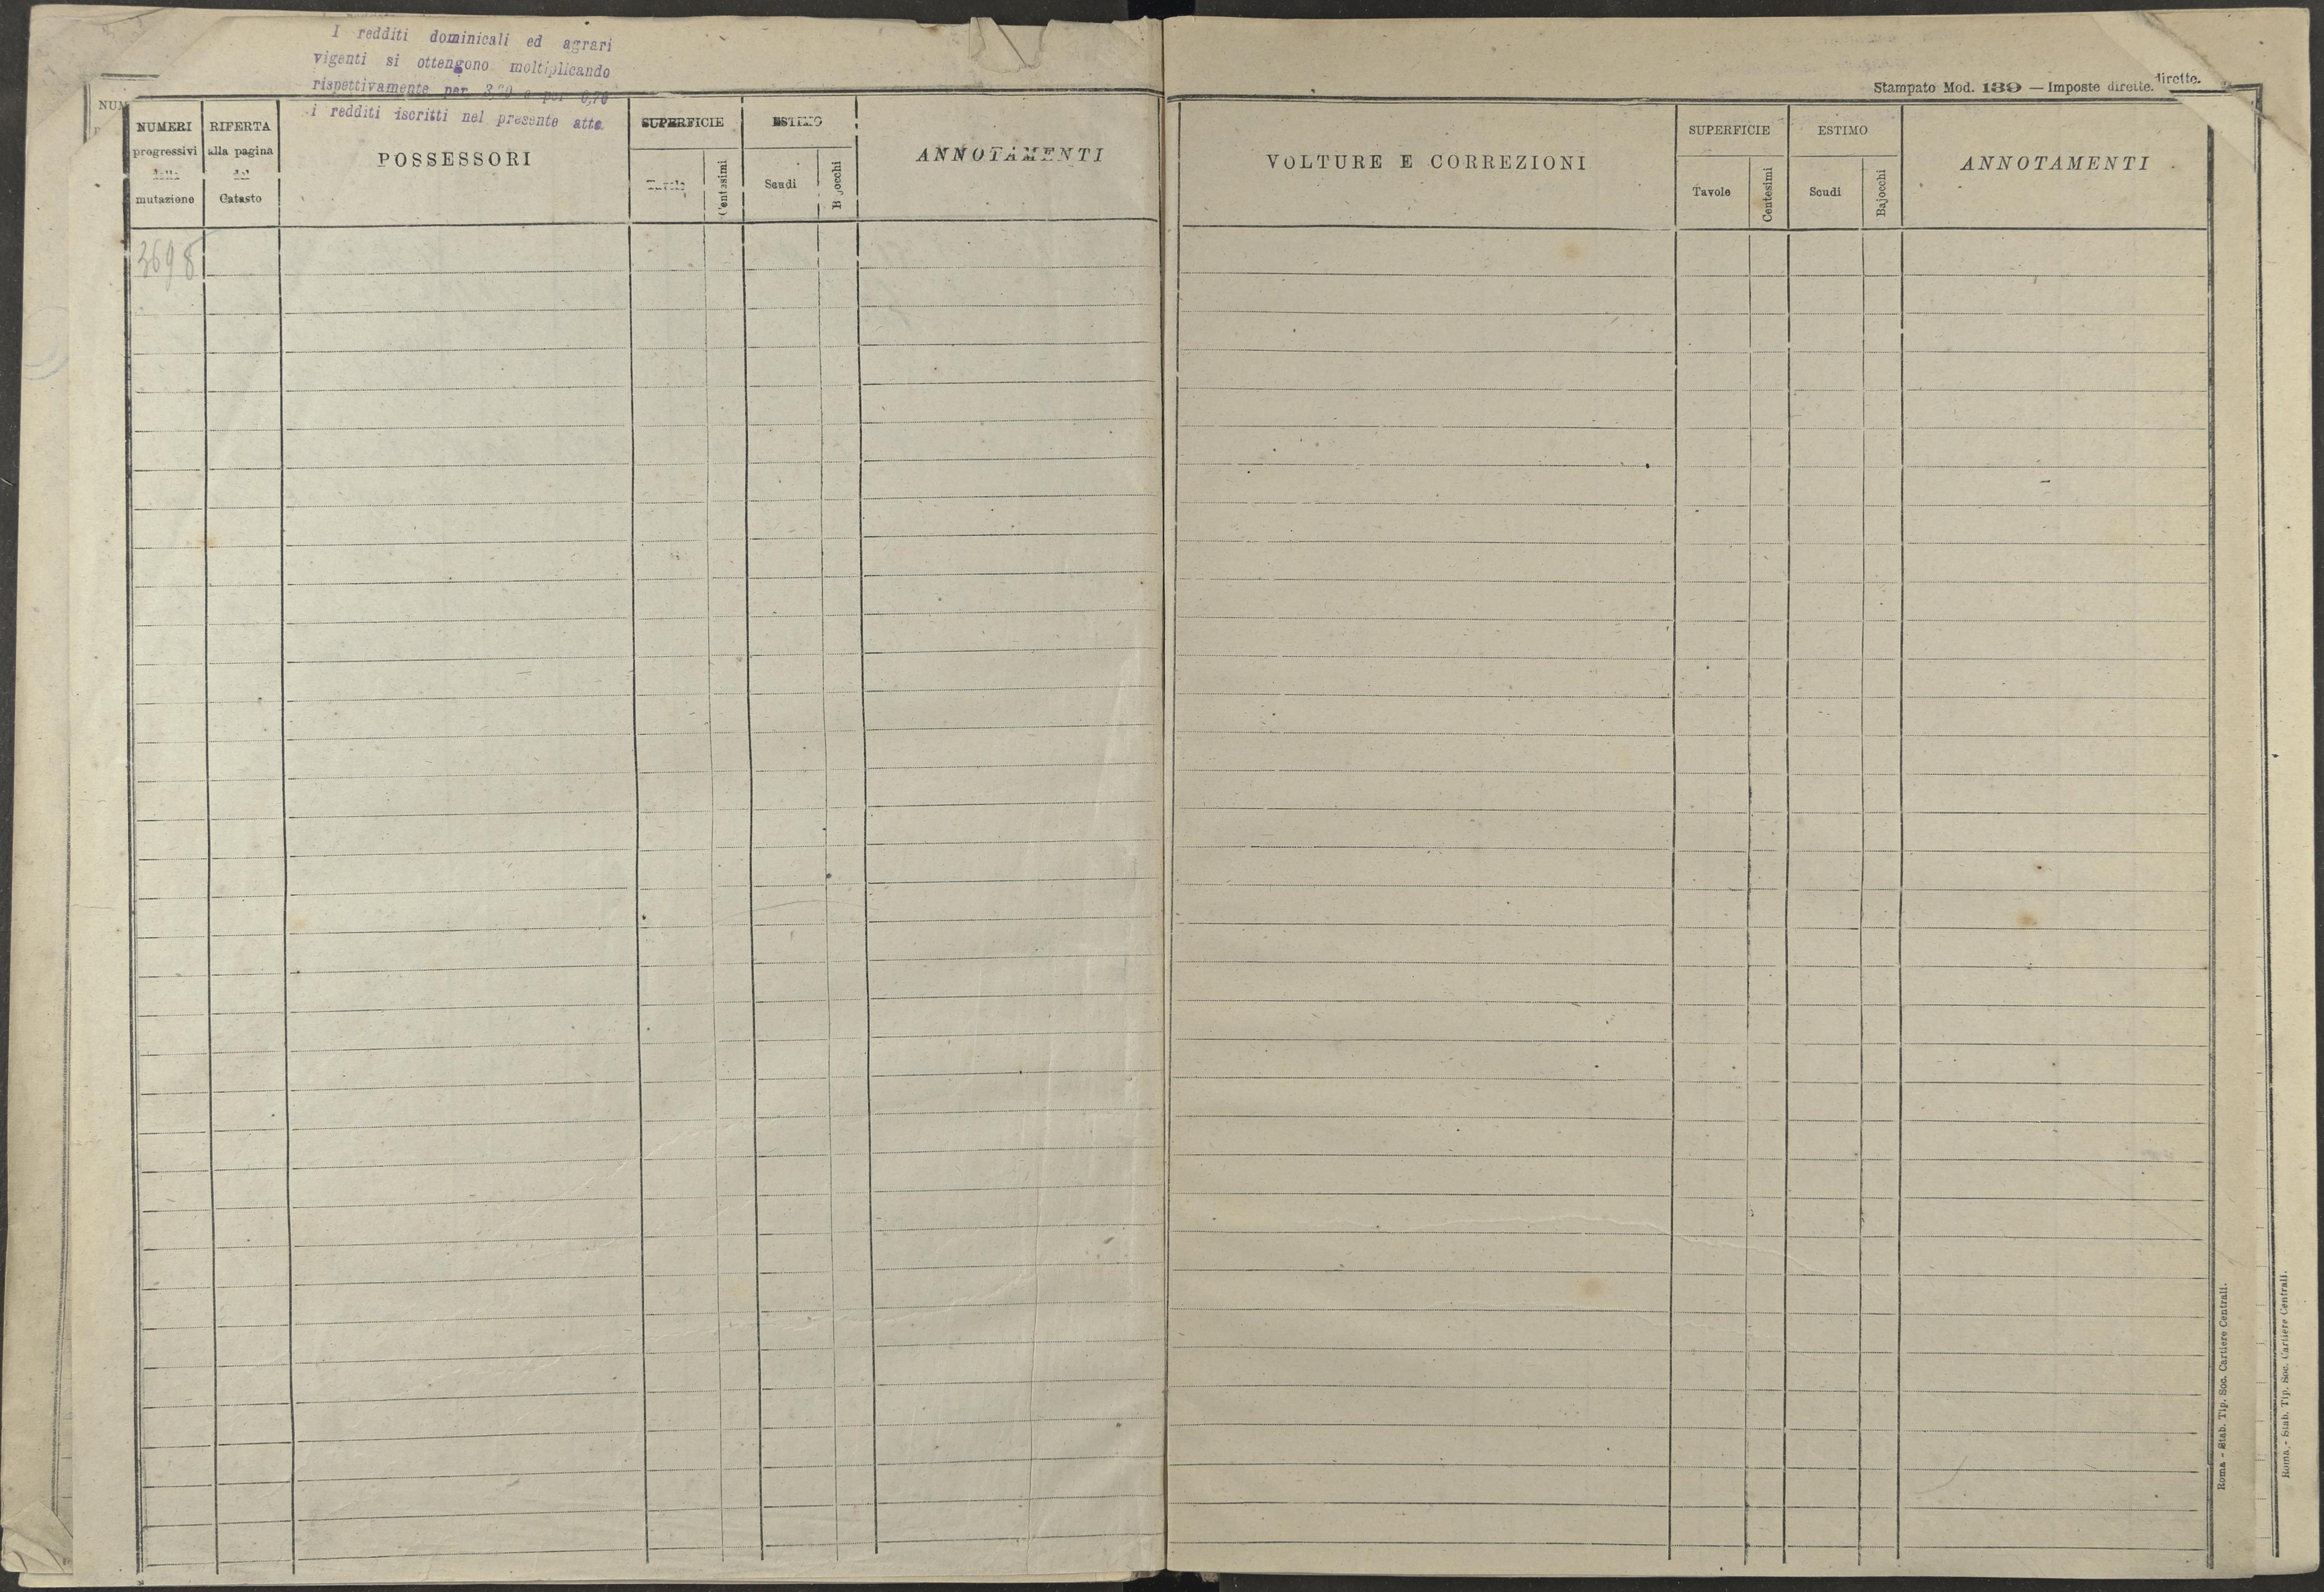 I redditi dominicali ed agrari
vigenti si ottengono moltiplicando
rispettivamente per 3,20 e per 6,70
i redditi iscritti nel presente atto.
NUM
NUMERI
progressivi
della
mutazione
RIFERTA
alla pagina
del
Catasto
POSSESSORI
SUPERFICIE
Tavole
Centesimi
ESTIMO
Scudi
Bajocchi
ANNOTAMENTI
3698
Stampato Mod. 139 — Imposte dirette.
dirette.
VOLTURE E CORREZIONI
SUPERFICIE
Tavole
Centesimi
ESTIMO
Scudi
Bajocchi
ANNOTAMENTI
Roma - Stab. Tip. Soc. Cartiere Centrali.
Roma - Stab. Tip. Soc. Cartiere Centrali.